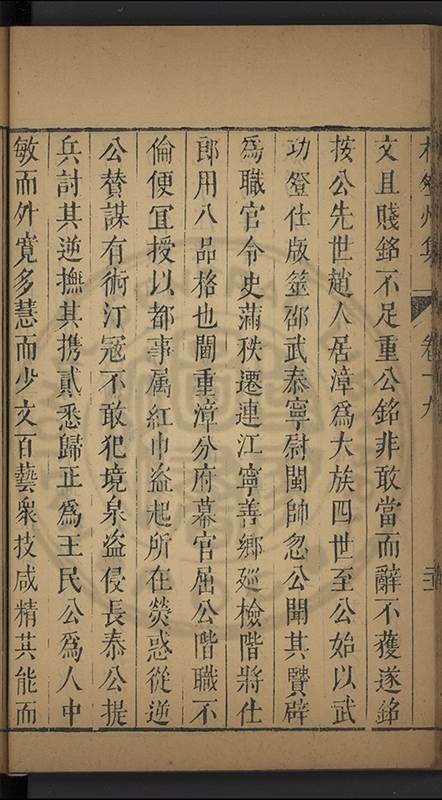 林登州集 卷十九
文且賤銘不足重公銘非敢當而辭不獲遂銘
按公先世趙人居漳為大族四世至公始以武
功登仕版筮邵武泰寧尉閩帥忽公聞其賢辟
為職官令史滿秩遷連江寧善鄉廵檢階將仕
郎用八品格也閫重漳分府幕官屈公階職不
倫便冝授以都事属紅巾盗起所在熒惑從逆
公賛謀有術汀冦不敢犯境泉盗侵長泰公提
兵討其逆撫其携貳悉歸正為王民公為人中
敏而外寛多慧而少文百藝衆技咸精其能而